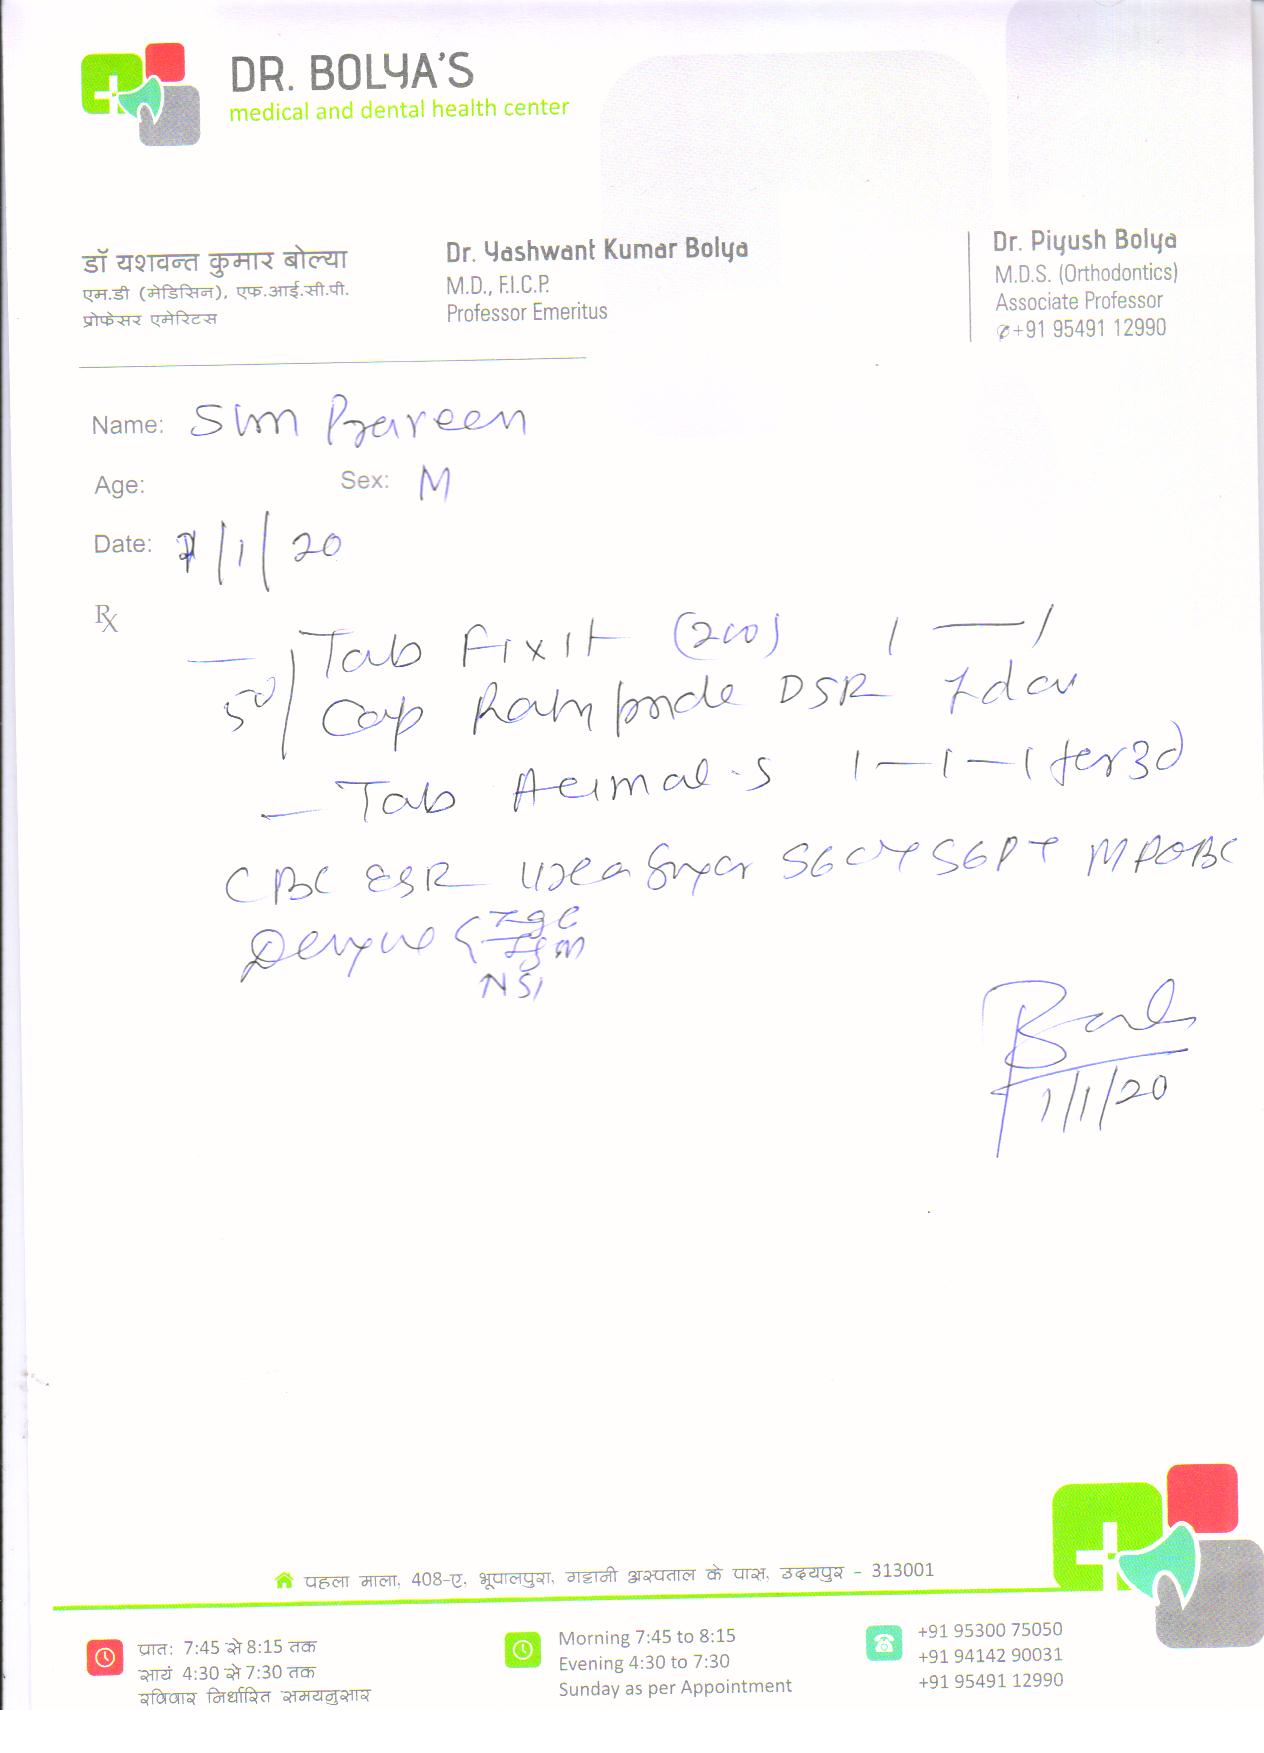 DR. BOLYA'S
medical and dental health center
डॉ यशवन्त कुमार बोल्या
एम.डी (मेडिसिन), एफ.आई.सी.पी.
प्रोफेसर एमेरिटस
Dr. Yashwant Kumar Bolya
M.D., F.I.C.P.
Professor Emeritus
Dr. Piyush Bolya
M.D.S. (Orthodontics)
Associate Professor
+91 95491 12990
Name: Praveen
Age: Sex: M
Date: 1/1/20
Rx
Tab Fixit (200) 1 — 1
50 Cap DSR 7 day
— Tab 1 — 1 — 1 for 3d
CBC ESR Urea Sugar SGOT SGPT
Dengue { IgG
IgM
NS1
1/1/20
पहला माला, 408-ए, भूपालपुरा, गट्टानी अस्पताल के पास, उदयपुर - 313001
प्रात: 7:45 से 8:15 तक
सायं 4:30 से 7:30 तक
रविवार निर्धारित समयनुसार
Morning 7:45 to 8:15
Evening 4:30 to 7:30
Sunday as per Appointment
+91 95300 75050
+91 94142 90031
+91 95491 12990